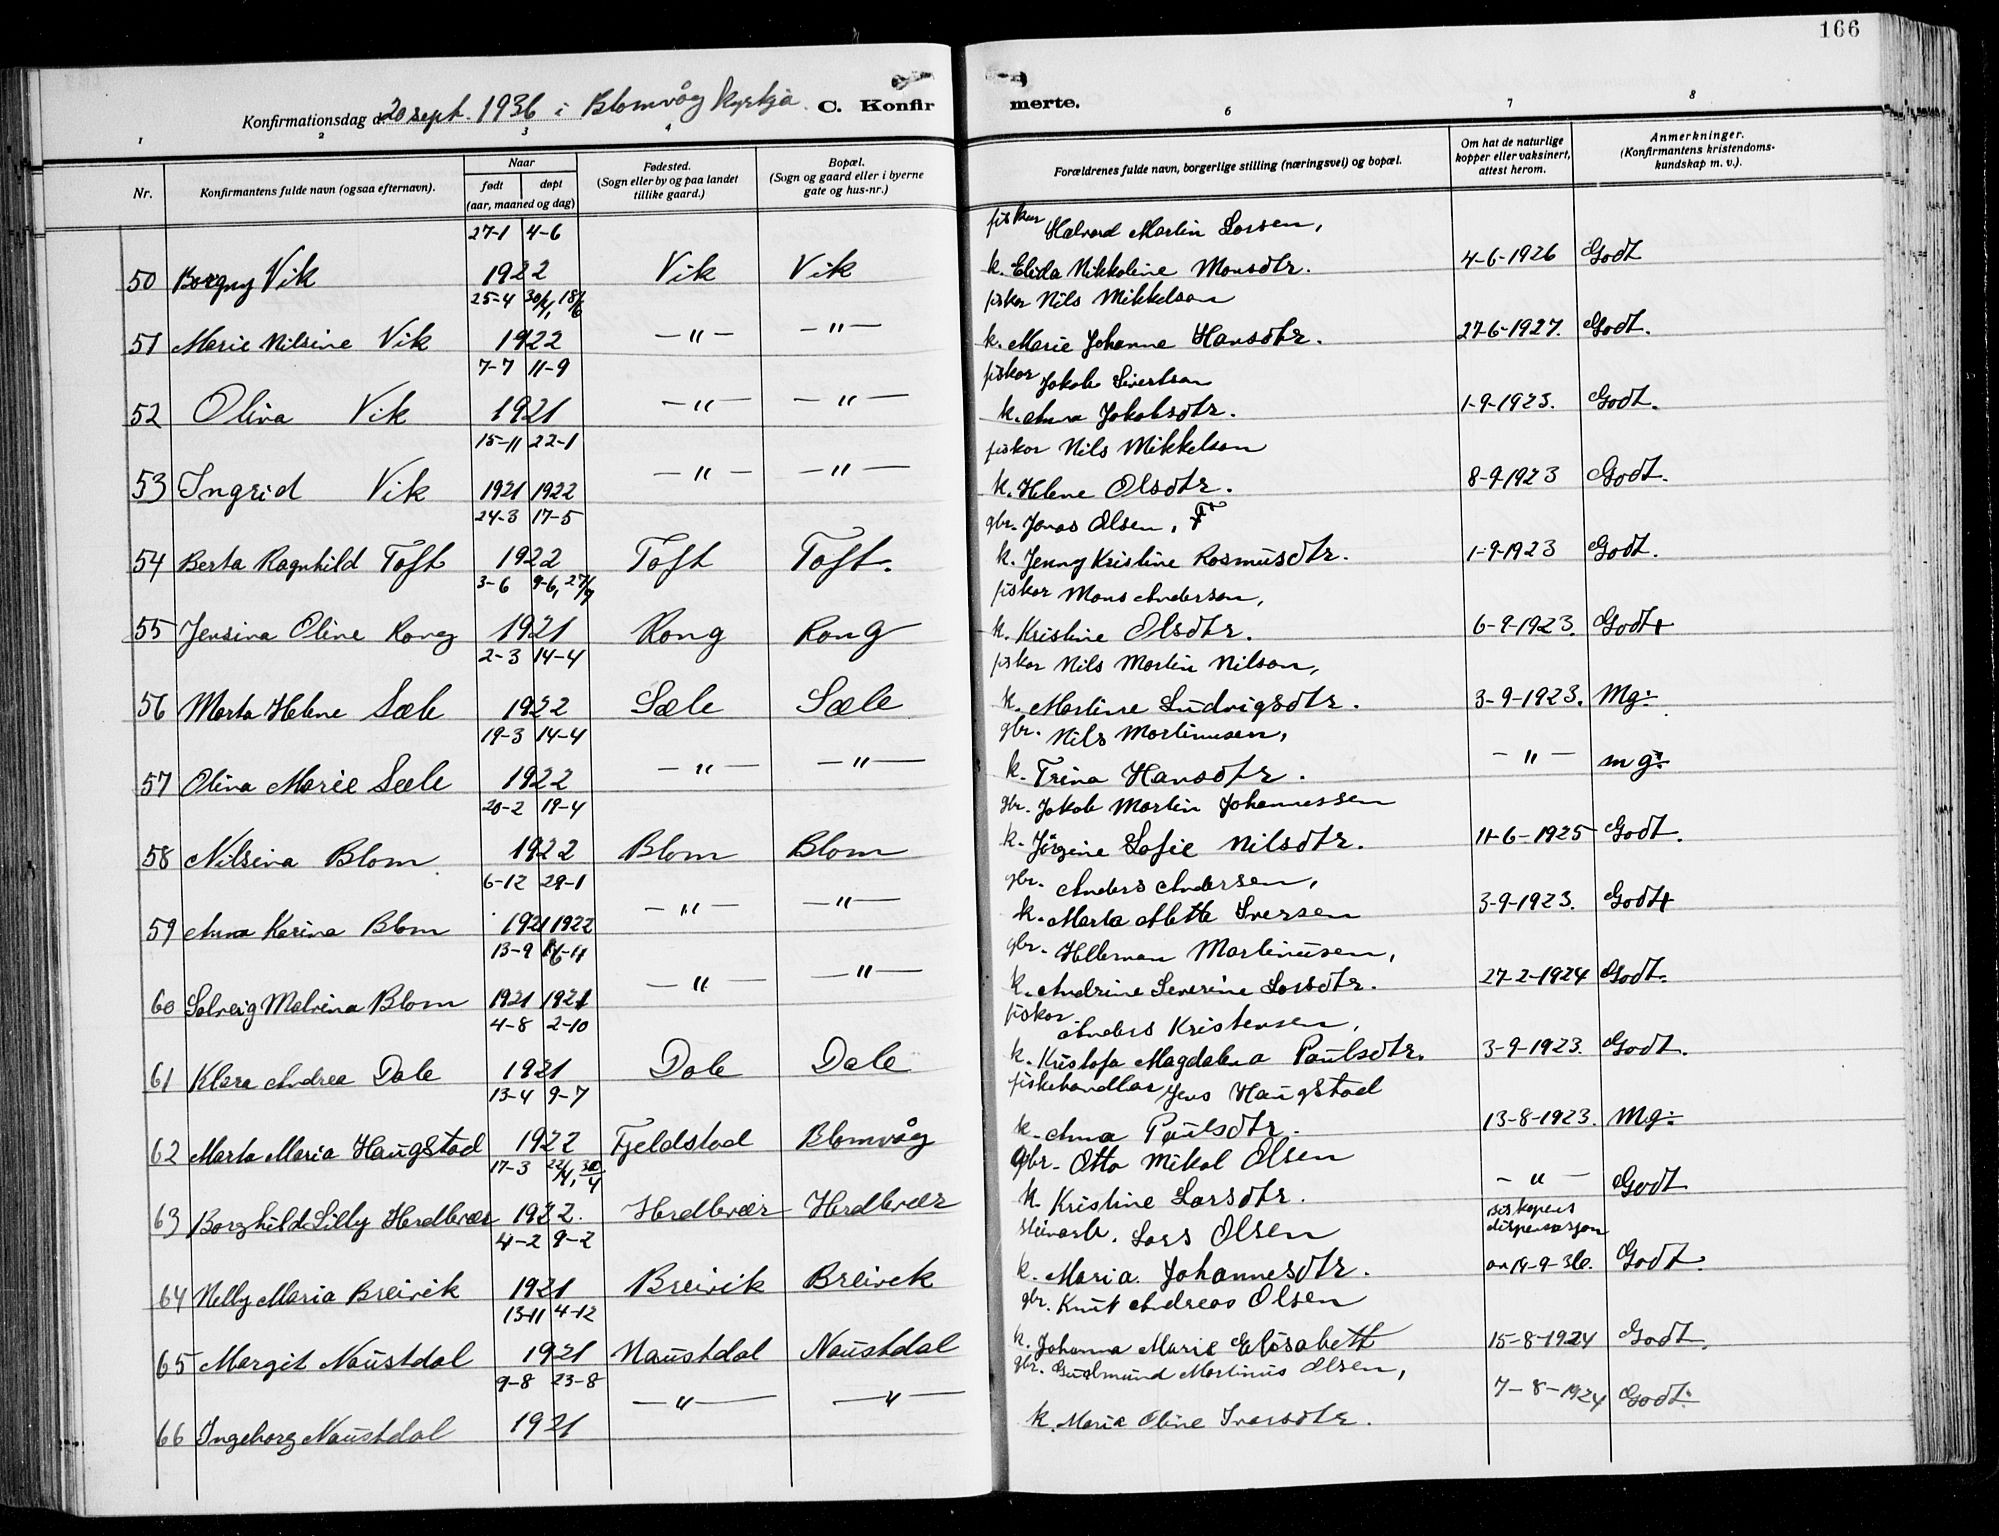 166
Konfirmationsdag d. 20 sept. 1936 i Blomvåg kyrkja. C. Konfir merte.
1 2 3 4 6 7 8
Nr. Konfirmantens fulde navn (ogsaa efternavn). Naar født døpt (aar, maaned og dag) Fødested. (Sogn eller by og paa landet tillike gaard.) Bopæl. (Sogn og gaard eller i byerne gate og hus-nr.) Forældrenes fulde navn, borgerlige stilling (næringsvei) og bopæl. Om hat de naturlige kopper eller vaksinert, attest herom. Anmerkninger. (Konfirmantens kristendoms-kundskap m. v.).
27-1 4-6 fiskar Halvard Martin Larsen,
50 Borgny Vik 1922 Vik Vik k. Elida Nikkoline Monsdtr. 4-6-1926 Godt
25-4 30/4, 18/6 fiskar Nils Mikkelson
51 Marie Nilsine Vik 1922 —"— —"— k. Marie Johanne Hansdtr. 27-6-1927. Godt.
7-7 11-9 fiskar Jakob Sivertson
52 Oliva Vik 1921 —"— —"— k. Anna Jakobsdtr. 1-9-1923. Godt.
15-11 22-1 fiskar Nils Mikkelson
53 Ingrid Vik 1921 1922 —"— —"— k. Helene Olsdtr. 8-9-1923 Godt.
24-3 17-5 gbr. Jonas Olsen,
54 Berta Ragnhild Toft 1922 Toft Toft. k. Jenny Kristine Rasmusdtr. 1-9-1923 Godt.
3-6 9-6, 27/9 fiskar Mons Anderson,
55 Jensina Oline Rong 1921 Rong Rong k. Kristine Olsdtr. 6-9-1923. Godt+
2-3 14-4 fiskar Nils Martin Nilson,
56 Marta Helene Sæle 1922 Sæle Sæle k. Martine Ludvigsdtr. 3-9-1923. Mg÷
19-3 14-4 gbr. Nils Martinusen,
57 Olina Marie Sæle 1922 —"— —"— k. Trina Hansdtr. —"— mg÷
20-2 19-4 gbr. Jakob Martin Johannessen
58 Nilsina Blom 1922 Blom Blom k. Jörgine Sofie Nilsdtr. 11-6-1925 Godt.
6-12 29-1 gbr. Anders Andersen,
59 Anna Karina Blom 1921 1922 —"— —"— k. Marta Mette Iversen 3-9-1923. Godt+
13-9 6-11 gbr. Hellerman Martinusen,
60 Solveig Malvina Blom 1921 1921 —"— —"— k. Andrine Severine Larsdtr. 27-2-1924 Godt.
4-8 2-10 fiskar Anders Kristensen,
61 Klara Andrea Dale 1921 Dale Dale k. Kristofa Magdalena Paulsdtr. 3-9-1923. Godt.
13-4 9-7 fiskehandlar Jens Haugstad
62 Marta Maria Haugstad 1922 Fjeldstad Blomvåg k. Anna Paulsdtr. 13-8-1923. Mg÷
17-3 22/4, 30/4 gbr. Otto Mikal Olsen
63 Borghild Lilly Herdlevær 1922. Herdlevær Herdlevær k. Kristine Larsdtr. —"— Godt
4-2 9-2 steinarb. Lars Olsen biskopens dispensasjon
64 Nelly Maria Breivik 1921 Breivik Breivik k. Maria Johannesdtr. av 19-9-36. Godt.
13-11 4-12 gbr. Knut Andreas Olsen
65 Margit Naustdal 1921 Naustdal Naustdal k. Johanna Marie Elisabett 15-8-1924 Godt.
9-8 23-8 gbr. Gudmund Martinus Olsen,
66 Ingeborg Naustdal 1921 —"— —"— k. Maria Oline Ivarsdtr. 7-8-1924 Godt.